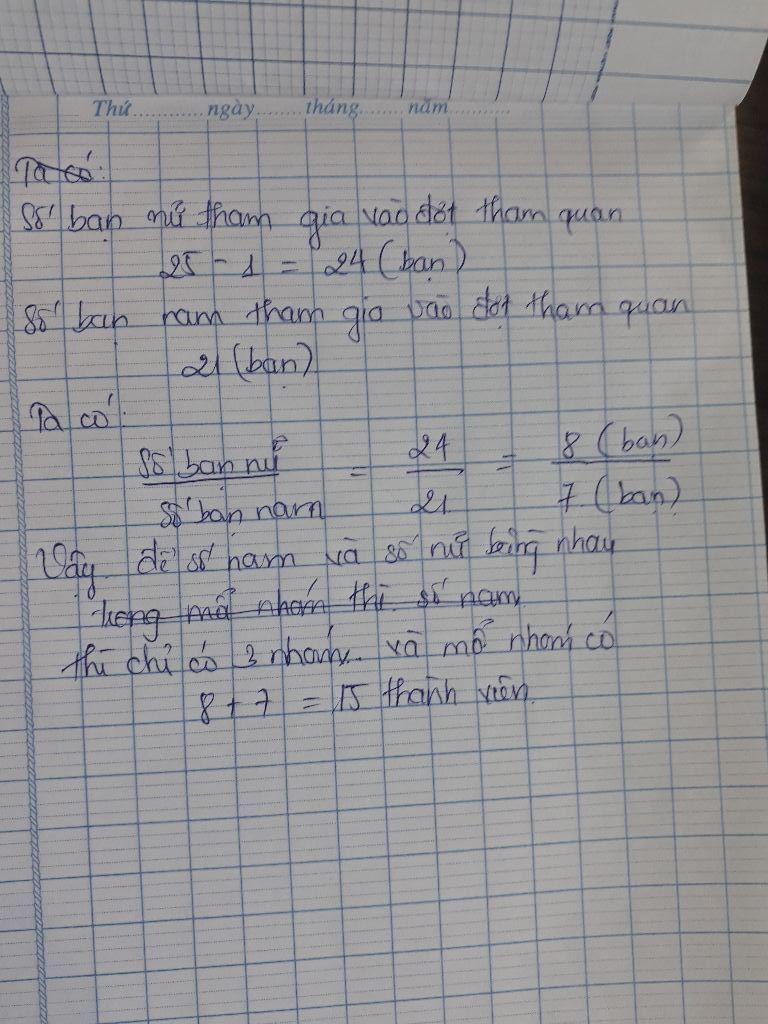 Thứ............ngày........tháng........năm............
Ta có:
Số bạn nữ tham gia vào đợt tham quan
25 - 1 = 24 (bạn)
Số bạn nam tham gia vào đợt tham quan
21 (bạn)
Ta có:
Số bạn nữ / Số bạn nam = 24 / 21 = 8 (bạn) / 7 (bạn)
Vậy để số nam và số nữ bằng nhau
trong mỗi nhóm thì số nam
thì chỉ có 3 nhóm. và mỗi nhóm có
8 + 7 = 15 thành viên.